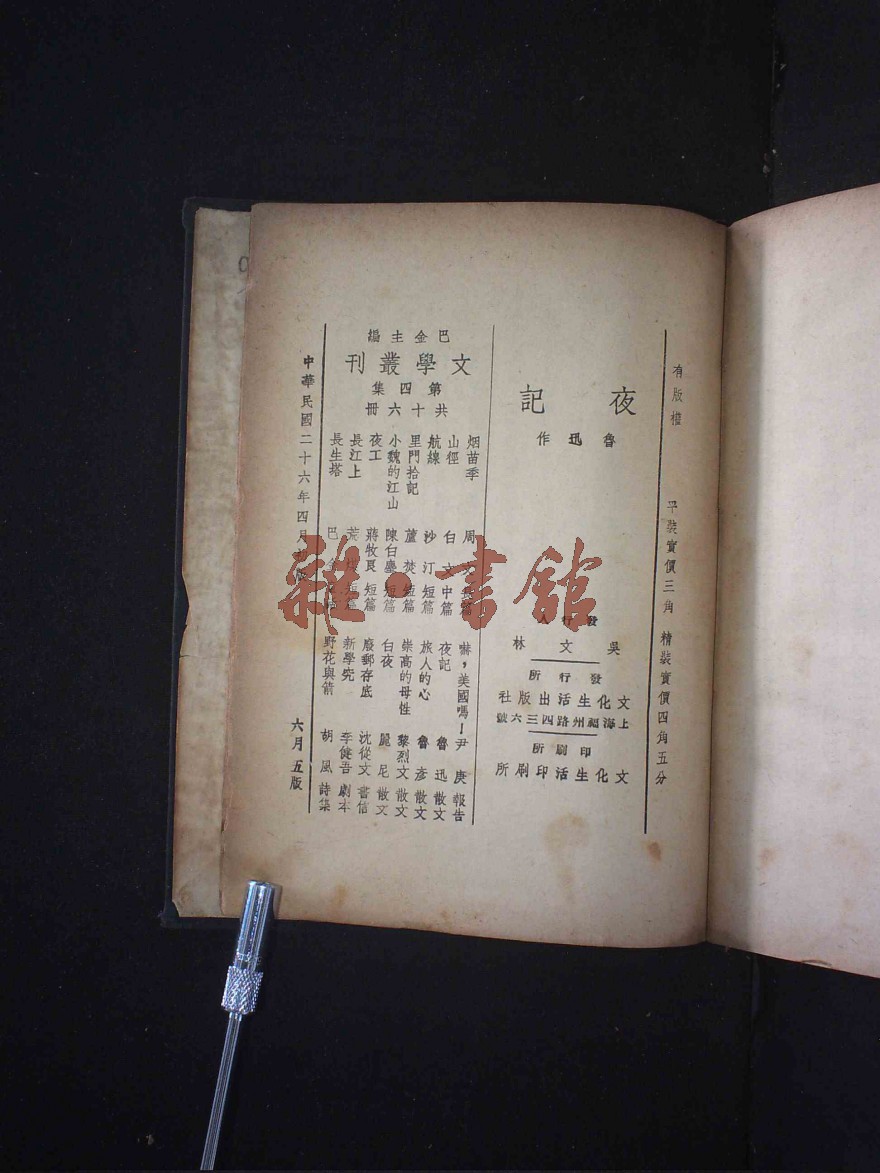 有版權
平裝實價三角 精裝實價四角五分
夜記
魯迅作
發行人
吳文林
發行所
文化生活出版社
上海福州路四三六號
印刷所
文化生活印刷所
巴金主編
文學叢刊
第四集
共十六冊
烟苗季 周文
山徑 白文 中篇
航線 沙汀 短篇
里門拾記 蘆焚 短篇
小魏的江山 陳白塵 短篇
夜工 蔣牧良 短篇
長江上 荒煤 短篇
長生塔 巴金
嚇，美國嗎！ 尹庚 報告
夜記 魯迅 散文
旅人的心 魯彥 散文
崇高的母性 黎烈文 散文
白夜 麗尼 散文
廢郵存底 沈從文 書信
新學究 李健吾 劇本
野花與箭 胡風 詩集
中華民國二十六年四月初版
六月五版
雜·書館